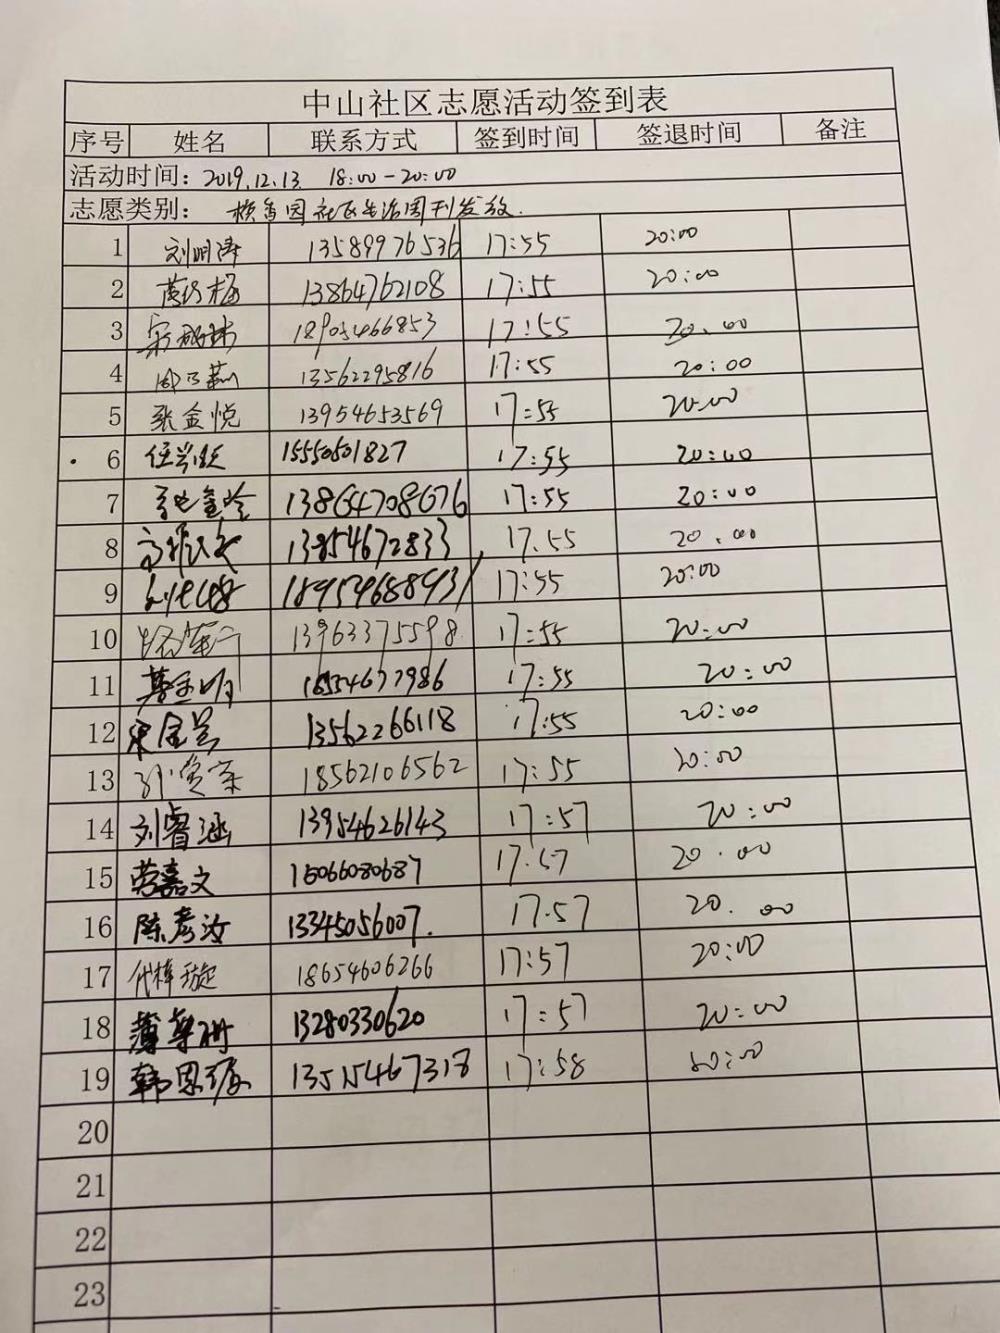 中山社区志愿活动签到表
序号 姓名 联系方式 签到时间 签退时间 备注
活动时间：2019.12.13 18:00-20:00
志愿类别： 社区生活周刊发放.
1 刘明涛 13589976536 17:55 20:00
2 13864762108 17:55 20:00
3 18905466853 17:55 20.00
4 13562295816 17:55 20:00
5 张金悦 13954653569 17:55 20:00
6 15550501827 17:55 20:00
7 13864708676 17:55 20:00
8 13854672833 17.55 20.00
9 18954688931 17:55 20:00
10 13963375598 17:55 20:00
11 17:55 20:00
12 13562266118 17:55 20:00
13 18562106562 17:55 20:00
14 刘睿涵 13954626143 17:57 20:00
15 嘉文 15066080687 17.57 20.00
16 陈彦汝 13345056007. 17.57 20.00
17 代梓璇 18654606266 17:57 20:00
18 13280330620 17:57 20:00
19 韩恩 13515467318 17:58 20:00
20
21
22
23